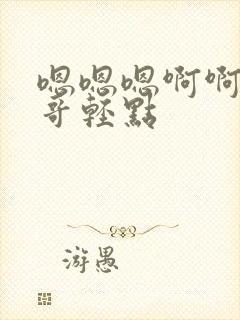 嗯嗯嗯啊啊
哥轻點
游愚